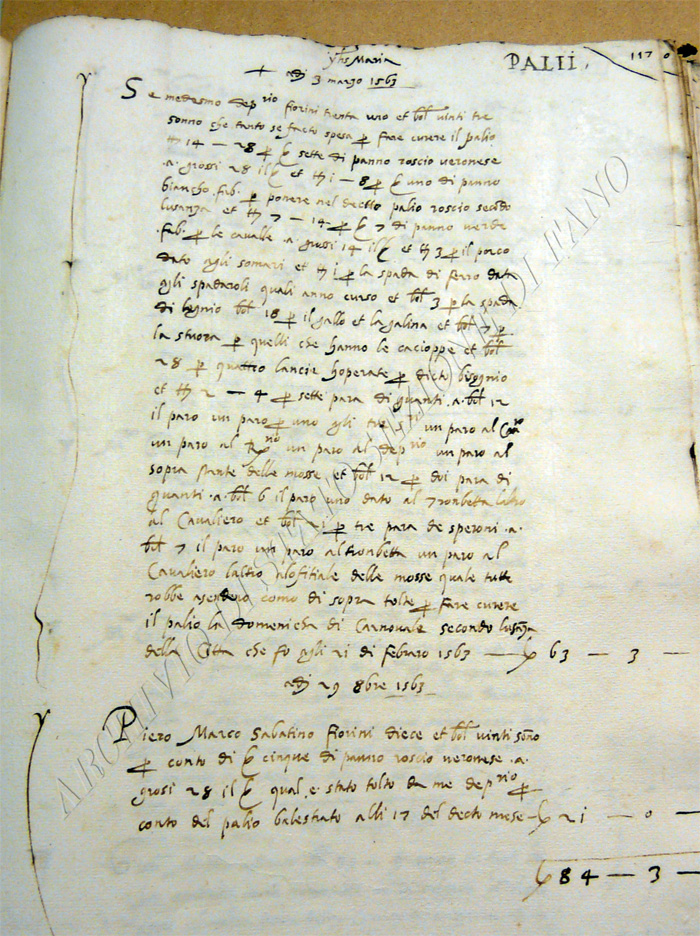 yhs Maria
PALII.
117
+ adi 3 marzo 1563
Se medesmo dep.rio fiorini trenta uno et bol vinti tre
sonno che tanto se facto spesa p fare curere il palio
14 — 28 p sette di panno roscio veronese
.a. grossi 28 il et 1 — 8 p uno di panno
biancho .fab. p ponere nel decto palio roscio secondo
lusanza et 7 — 14 p 7 di panno verde
.fab. p le cavalle .a. grossi 14 il et 3 p il porco
dato agli somari et 1 p la spada di ferro data
agli spadaroli quali anno curso et bol 3 p la spada
di legnio bol 18 p il gallo et la galina et bol 7 p
la stuora p quelli che hanno le cacioppe et bol
28 p quattro lancie hoperate p dicto bisognio
et 2 — 4 p sette para di guanti .a. bol 12
il paro un paro p uno agli tre s.ri un paro al
un paro al un paro al dep.rio un paro al
sopra stante delle mosse et bol 12 p doi para di
guanti .a. bol 6 il paro uno dato al tronbetta laltro
al Cavaliero et bol 21 p tre para de speroni .a.
bol 7 il paro un paro al tronbetta un paro al
Cavaliero laltro alofitiale delle mosse quale tutte
robbe asendeno como di sopra tolte p fare curere
il palio la domenicha di Carnovale secondo lusanza
della Citta che fo agli 21 di febraro 1563 — 63 — 3 —
adi 29 8bre 1563
Piero Marco Sabatino fiorini diece et bol vinti sono
p conto di cinque di panno roscio veronese .a.
grossi 28 il qual e stato tolto da me dep.rio p
conto del palio balestrato alli 17 del decto mese — 21 — 0 —
84 — 3 —
ARCHIVIO DI STATO SEZIONE DI FANO